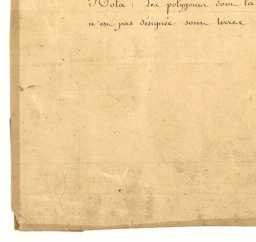 Nota: les polygones dont la
n'est pas designée sont terres